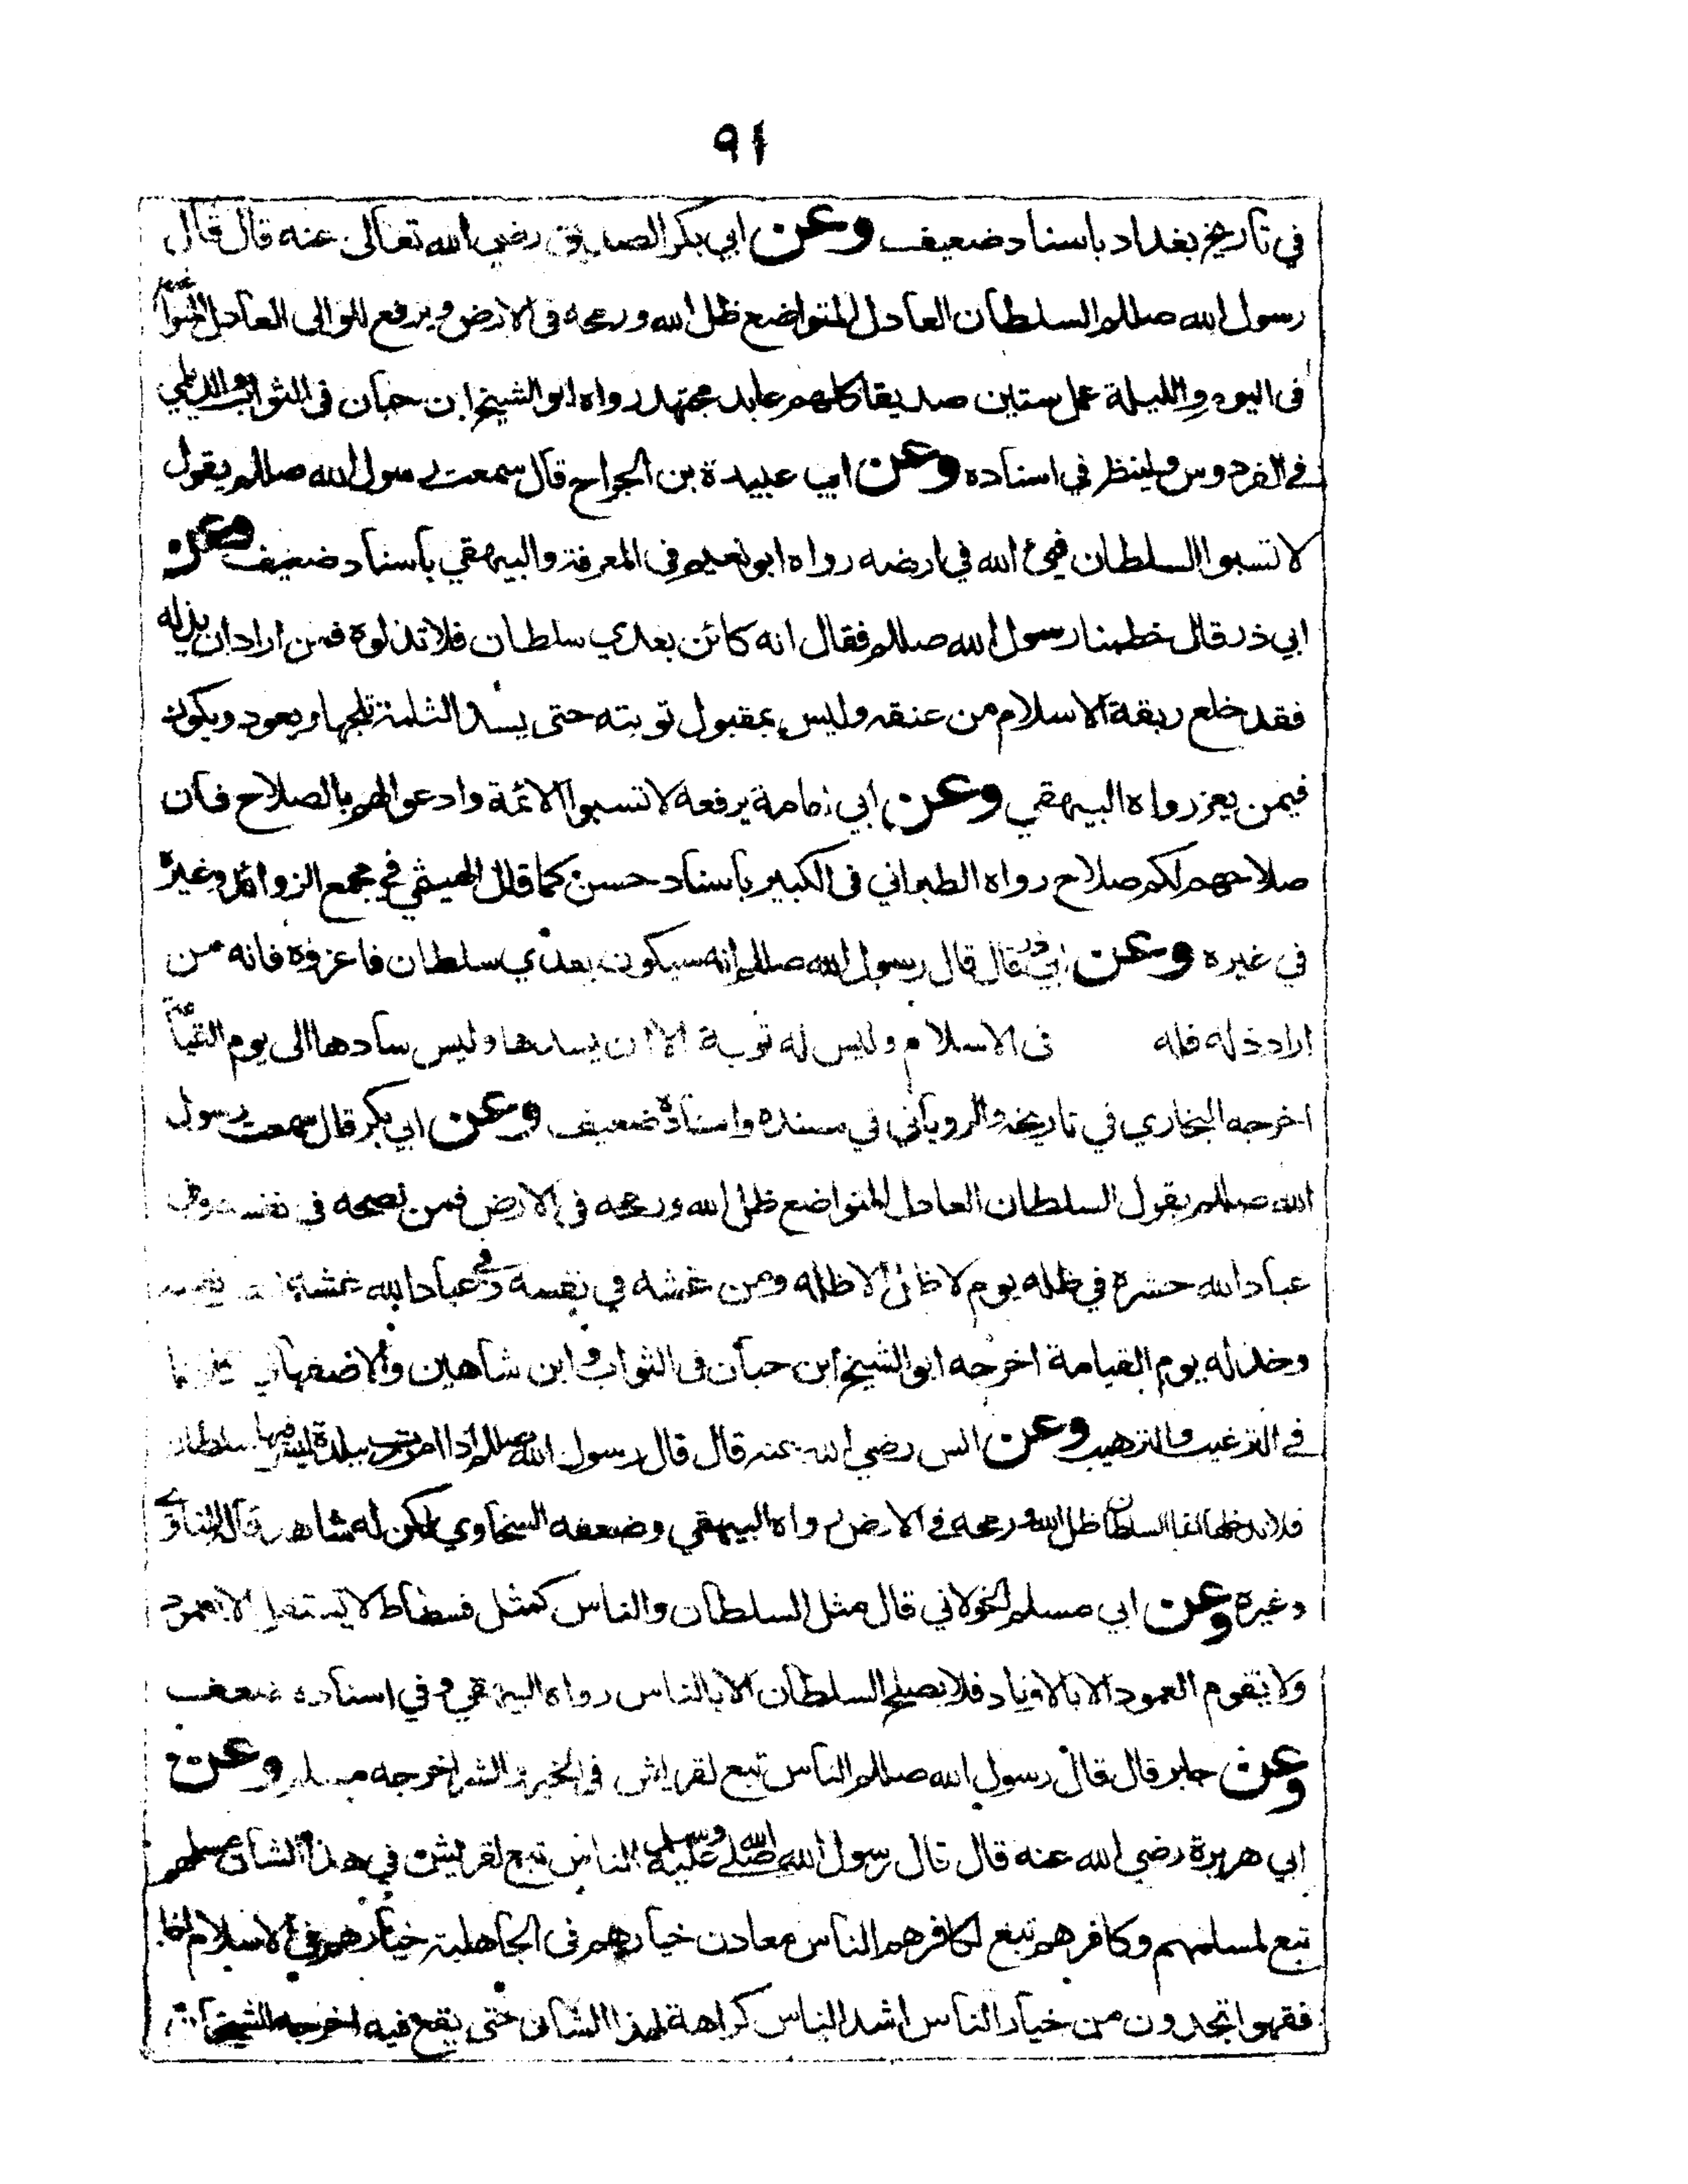 ٩١
في تاريخ بغداد باسناد ضعيف وعن ابي بكر الصديق رضي الله تعالى عنه قال قال
رسول الله صللم السلطان العادل المتواضع ظل الله ورمحه فى الارض ويرفع للوالى العادل المتواضع
فى اليوم والليلة عمل ستين صديقا كلهم عابد مجتهد رواه ابو الشيخ ابن حبان فى الثواب والديلمي
في الفردوس ولينظر في اسناده وعن ابي عبيدة بن الجراح قال سمعت رسول الله صللم يقول
لا تسبوا السلطان فيئ الله في ارضه رواه ابو نعيم فى المعرفة والبيهقي باسناد ضعيف وعن
ابي ذر قال خطبنا رسول الله صللم فقال انه كائن بعدي سلطان فلا تذلوه فمن اراد ان يذله
فقد خلع ربقة الاسلام من عنقه وليس بمقبول توبته حتى يسد الثلمة ويعود ويكون
فيمن يعز رواه البيهقي وعن ابي امامة يرفعه لا تسبوا الائمة وادعوا لهم بالصلاح فان
صلاحهم لكم صلاح رواه الطبراني فى الكبير باسناد حسن كما قال الهيثمي في مجمع الزوائد وغيره
في غيره وعن ابي ذر قال قال رسول الله صللم انه سيكون بعدي سلطان فاعزوه فانه من
اراد ذله فله فى الاسلام وليس له توبة الا ان يسدها وليس سادها الى يوم القيامة
اخرجه البخاري في تاريخه والروياني في مسنده واسناده ضعيف وعن ابي بكر قال سمعت رسول
الله صللم يقول السلطان العادل المتواضع ظل الله ورمحه فى الارض فمن نصحه في نفسه وفى
عباد الله حشره في ظله يوم لا ظل الا ظله ومن غشه في نفسه وفي عباد الله غشه
وخذله يوم القيامة اخرجه ابو الشيخ ابن حبان فى الثواب وابن شاهين والاصفهاني
في الترغيب والترهيب وعن انس رضي الله عنه قال قال رسول الله صللم اذا مررت ببلدة ليس فيها سلطان
فلا تدخلها انما السلطان ظل الله ورمحه في الارض رواه البيهقي وضعفه السخاوي لكن له شاهد قاله المناوي
وغيره وعن ابي مسلم الخولاني قال مثل السلطان والناس كمثل فسطاط لا يستقل الا بعمود
ولا يقوم العمود الا بالاوتاد فلا يصلح السلطان الا بالناس رواه البيهقي وفي اسناده ضعف
وعن جابر قال قال رسول الله صللم الناس تبع لقريش فى الخير والشر اخرجه مسلم وعن
ابي هريرة رضي الله عنه قال قال رسول الله صلى الله عليه وسلم الناس تبع لقريش في هذا الشان مسلمهم
تبع لمسلمهم وكافرهم تبع لكافرهم الناس معادن خيارهم فى الجاهلية خيارهم في الاسلام اذا
فقهوا تجدون من خيار الناس اشد الناس كراهة لهذا الشان حتى يقع فيه اخرجه الشيخان